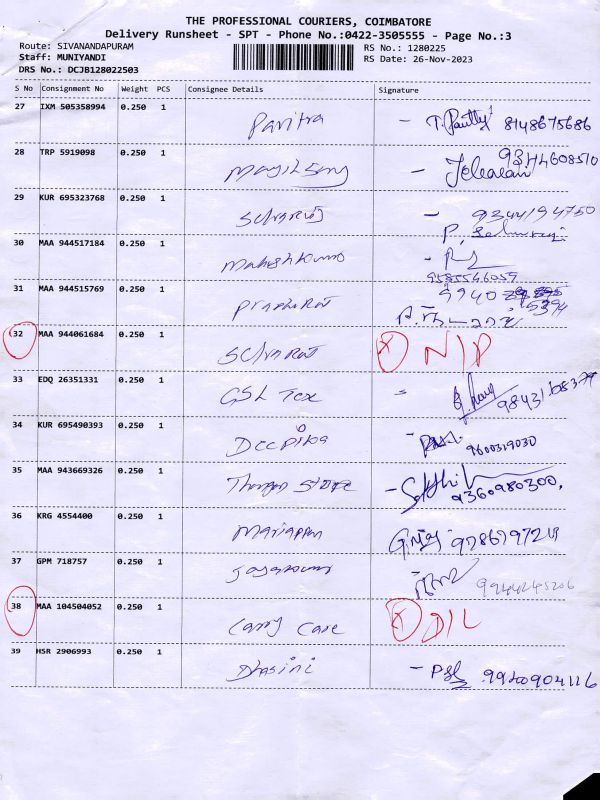 THE PROFESSIONAL COURIERS, COIMBATORE
Delivery Runsheet - SPT - Phone No.:0422-3505555 - Page No.:3
Route: SIVANANDAPURAM RS No.: 1280225
Staff: MUNIYANDI RS Date: 26-Nov-2023
DRS No.: DCJB128022503
S No Consignment No Weight PCS Consignee Details Signature
27 IXM 505358994 0.250 1 Pavitra - 8148675686
28 TRP 5919098 0.250 1 - 9344608510
29 KUR 695323768 0.250 1 Selvaraj - 9344194750
P. Selvaraj
30 MAA 944517184 0.250 1 -
9585546059
31 MAA 944515769 0.250 1 9940
5394
32 MAA 944061684 0.250 1 Selvaraj X N/P
33 EDQ 26351331 0.250 1 GSL Tex
34 KUR 695490393 0.250 1 Deepika - 9600319030
35 MAA 943669326 0.250 1 Store - Sakthi
9360980300.
36 KRG 4554400 0.250 1 Mariappan
37 GPM 718757 0.250 1 9944245206
38 MAA 104504052 0.250 1 Carry Care X D/L
39 HSR 2906993 0.250 1 Dhasini - 9920904116